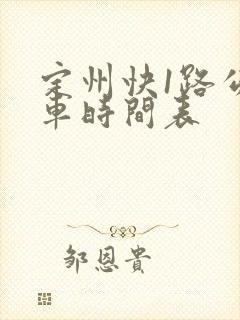 定州快1路公
車時間表
邹恩貴